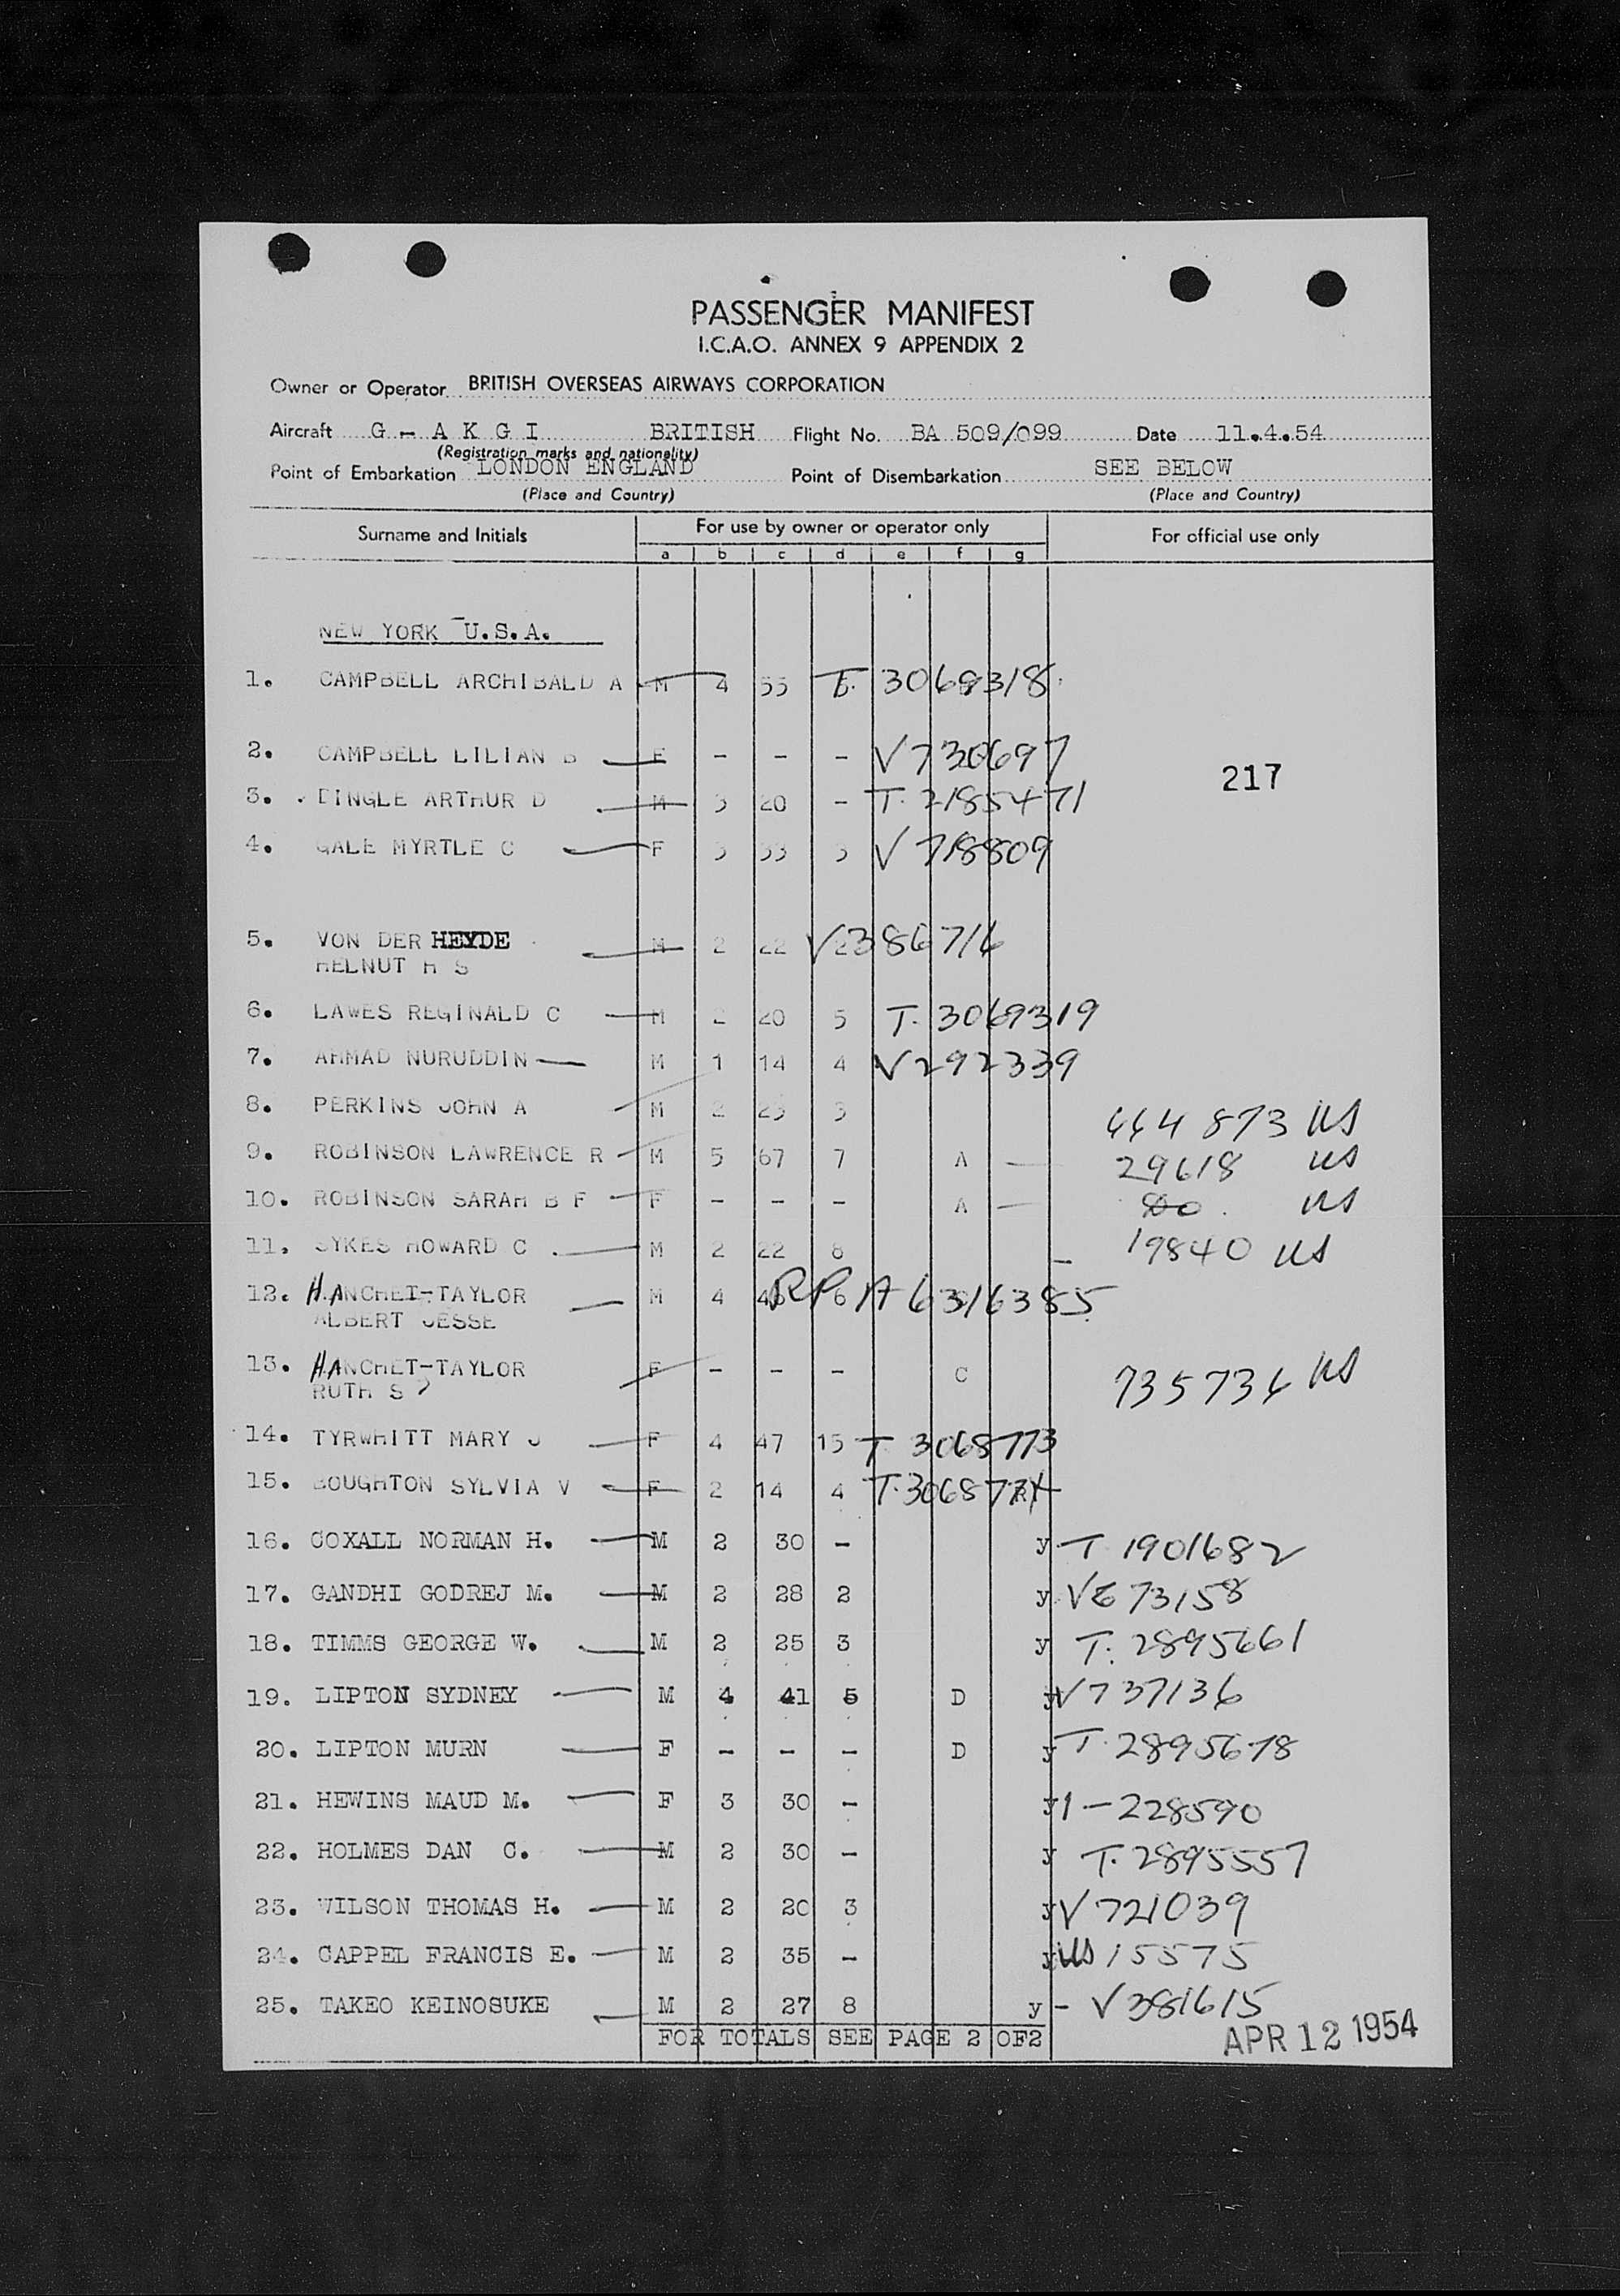 PASSENGER MANIFEST
I.C.A.O. ANNEX 9 APPENDIX 2
Owner or Operator BRITISH OVERSEAS AIRWAYS CORPORATION
Aircraft G - A K G I BRITISH Flight No. BA 509/099 Date 11.4.54
(Registration marks and nationality)
Point of Embarkation LONDON ENGLAND Point of Disembarkation SEE BELOW
(Place and Country) (Place and Country)
Surname and Initials For use by owner or operator only For official use only
a b c d e f g
NEW YORK U.S.A.
1. CAMPBELL ARCHIBALD A M 4 55 T. 3069318
2. CAMPBELL LILIAN B F - - - V 730697
217
3. DINGLE ARTHUR D M 3 20 - T. 2185471
4. GALE MYRTLE C F 3 33 3 V 718809
5. VON DER HEYDE M 2 22 2 V386716
HELNUT H S
6. LAWES REGINALD C M 2 20 5 T. 3069319
7. AHMAD NURUDDIN M 1 14 4 V292339
8. PERKINS JOHN A M 2 23 3 664 873 US
9. ROBINSON LAWRENCE R M 5 67 7 A 29618 US
10. ROBINSON SARAH B F F - - - A Do. US
11. SYKES HOWARD C M 2 22 8 19840 US
12. HANCHET-TAYLOR M 4 46 6 RP A6316385
ALBERT JESSE
13. HANCHET-TAYLOR F - - - C 735736 US
RUTH S
14. TYRWHITT MARY J F 4 47 15 T 3068773
15. BOUGHTON SYLVIA V F 2 14 4 T. 3068774
16. COXALL NORMAN H. M 2 30 - y T 1901682
17. GANDHI GODREJ M. M 2 28 2 y V673158
18. TIMMS GEORGE W. M 2 25 3 y T. 2895661
19. LIPTON SYDNEY M 4 41 5 D y V737136
20. LIPTON MURN F - - - D y T. 2895678
21. HEWINS MAUD M. F 3 30 - y 1-228590
22. HOLMES DAN C. M 2 30 - y T. 2895557
23. WILSON THOMAS H. M 2 20 3 y V 721039
24. CAPPEL FRANCIS E. M 2 35 - y US 15575
25. TAKEO KEINOSUKE M 2 27 8 y - V381615
FOR TOTALS SEE PAGE 2 OF2
APR 12 1954